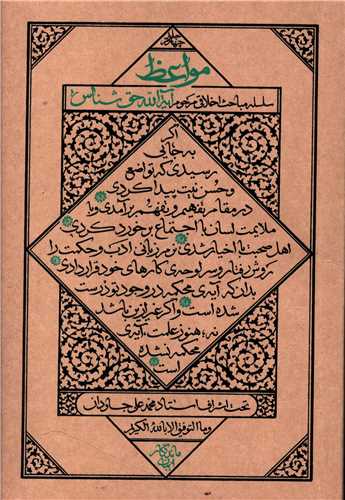 مواعظ
سلسله مباحث اخلاقی مرحوم آیة‌الله حق‌شناس
اگر
به جائی
رسیدی که تواضع
و حسن نیت پیدا کردی
در مقام تفهیم و تفهّم برآمدی و با
ملایمت لسان با اجتماع برخورد کردی
اهل صحبت با اخیار شدی نرم زبانی ادب و حکمت را
روش رفتار و سرلوحه‌ی کارهای خود قرار دادی
بدان که آیه‌ی محکمه در وجود تو درست
شده است و اگر غیر از این باشد
نه؛ هنوز علمت، آیه‌ی
محکمه نشده
است
تحت اشراف استاد محمد علی جاودان
وما التوفیق الا بالله الکریم